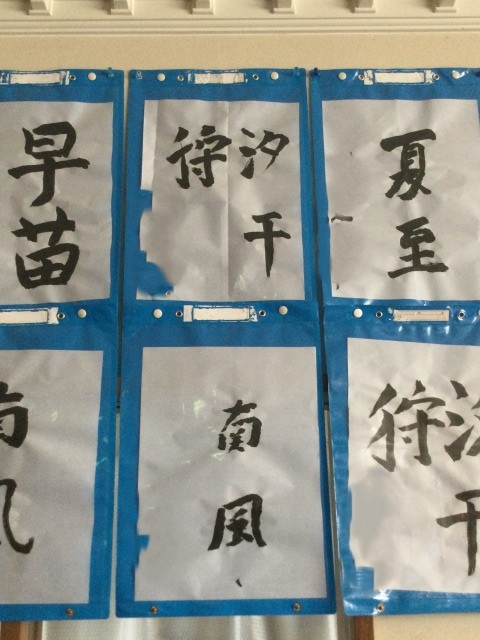 早苗
汐干
狩
夏至
南風
南風
汐干
狩